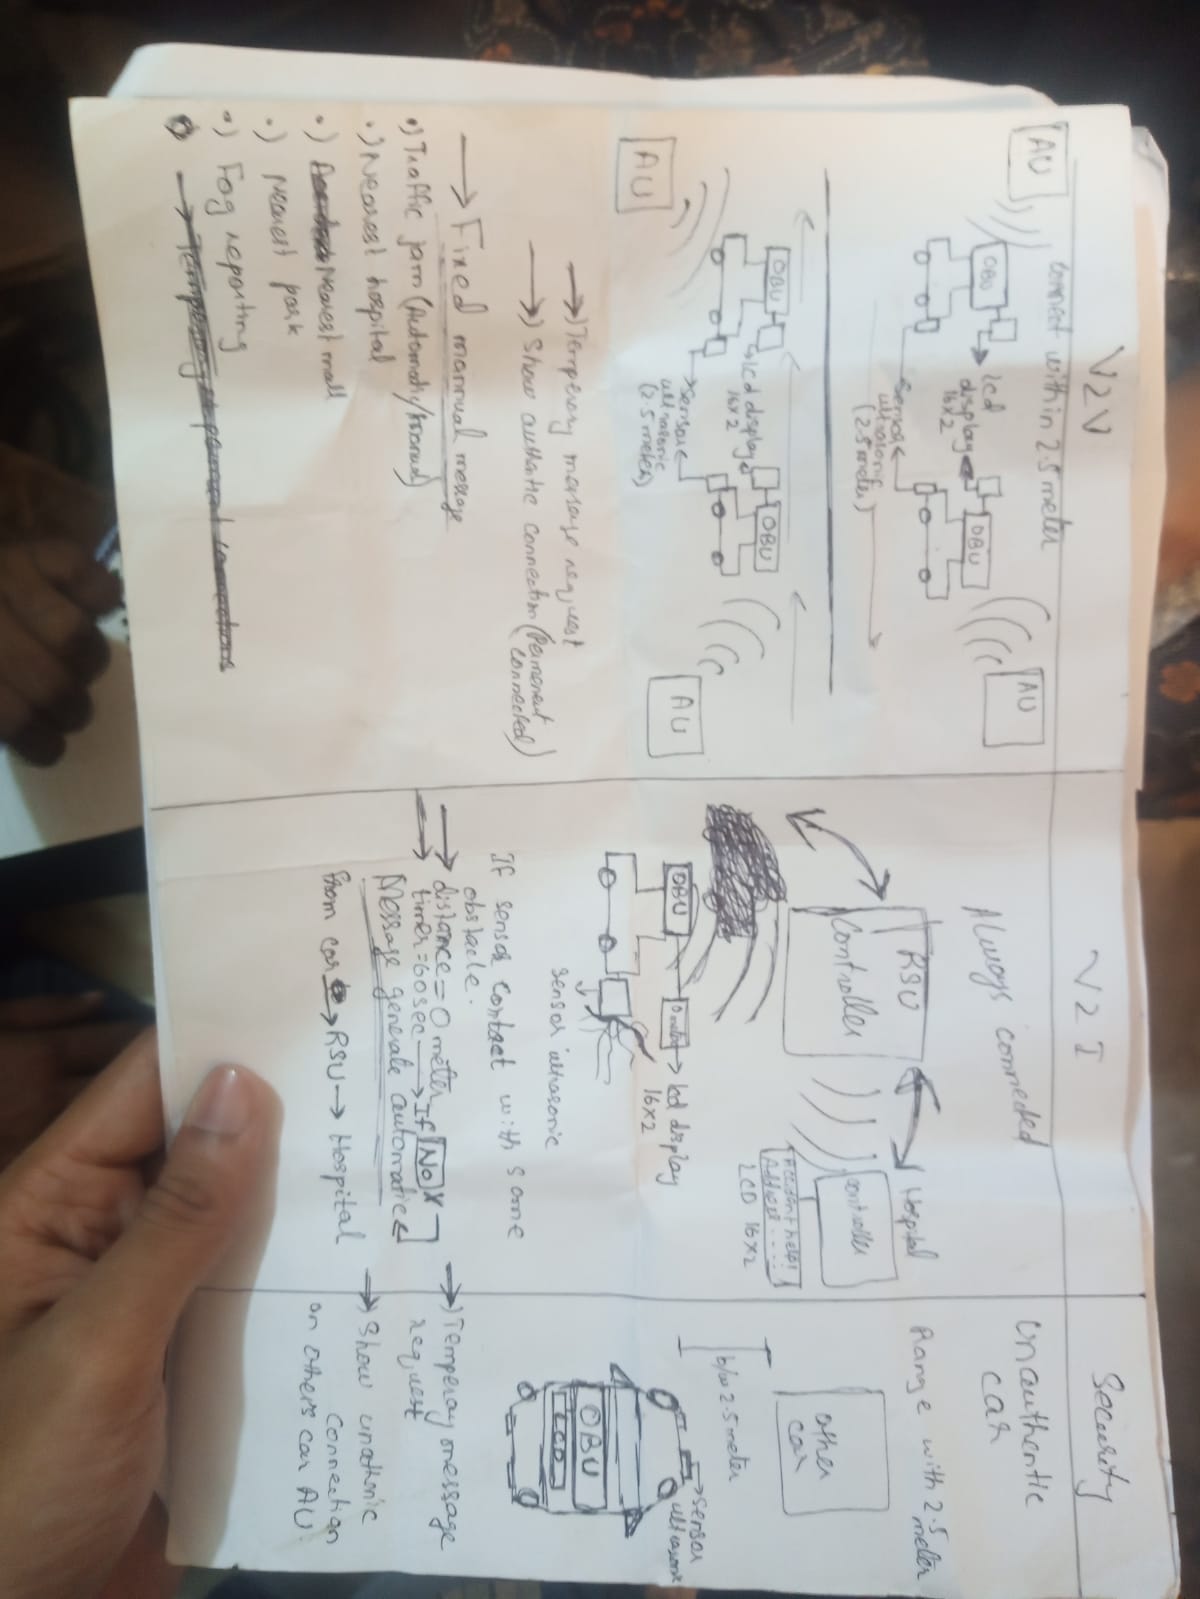 V2V
connect within 2.5 meter
AU
OBU
lcd
display
16x2
OBU
AU
sensor
ultrasonic
(2.5 meter)
OBU
lcd display
16x2
OBU
sensor
ultrasonic
(2.5 meter)
AU
AU
→) Temperoy message request
→) Show authentic connection (Permenent
connected)
→ Fixed mannual message
•) Traffic jam (Automatic/
•) Nearest hospital
•) Nearest mall
•) Nearest park
•) Fog reporting
V2I
Always connected
RSU
Controller
Hospital
controller
Accident help!
Address ....
LCD 16x2
OBU
lcd display
16x2
sensor ultrasonic
If sensor contact with some
obstacle.
→ distance = 0 metter
→ timer = 60 sec → If No X
Message generate automatic
From car → RSU → Hospital
Security
Unauthentic
car
Range with 2.5
meter
other
car
b/w 2.5 meter
sensor
ultrasonic
OBU
LCD
→) Temperoy message
request
→) Show unathonic
connection
on others car AU.